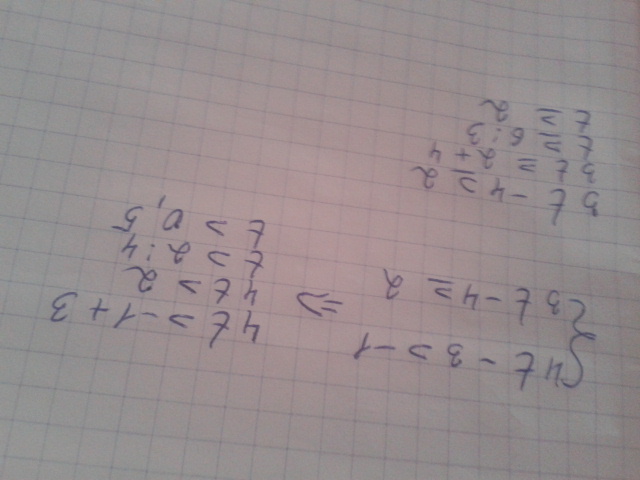 {4t - 3 > -1
3t - 4 ≥ 2
=>
4t > -1 + 3
4t > 2
t > 2 : 4
t > 0,5
3t - 4 ≥ 2
3t ≥ 2 + 4
t ≥ 6 : 3
t ≥ 2